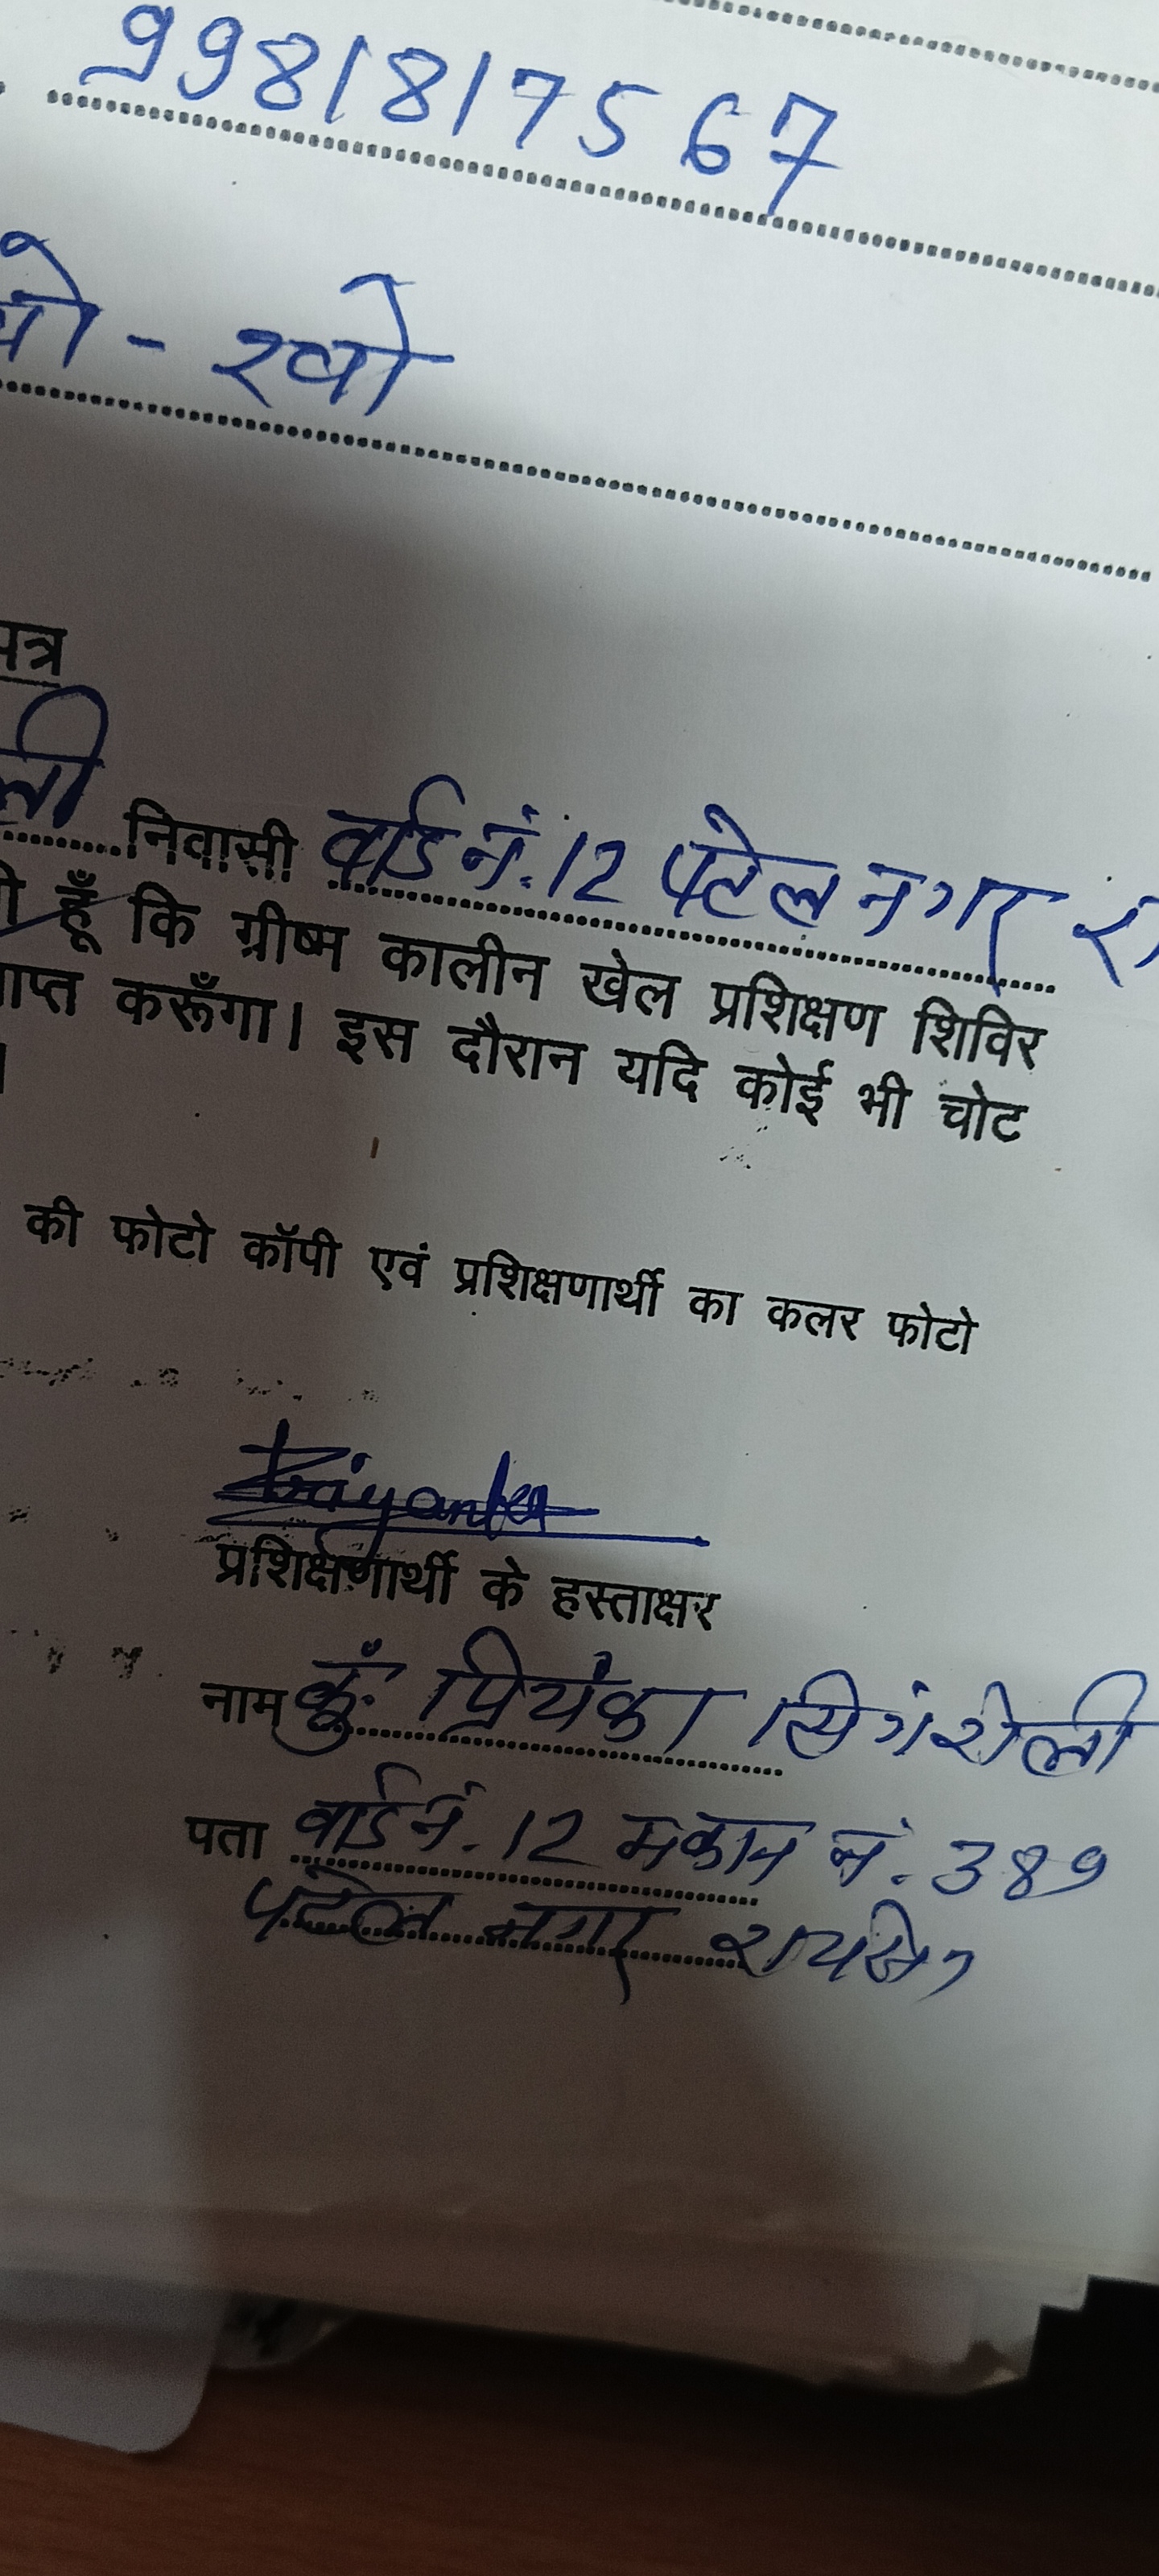 9981817567
यो - खो
पत्र
ली निवासी वार्ड नं. 12 पटेल नगर रा
हूँ कि ग्रीष्म कालीन खेल प्रशिक्षण शिविर
ाप्त करूँगा। इस दौरान यदि कोई भी चोट
की फोटो कॉपी एवं प्रशिक्षणार्थी का कलर फोटो
Priyanka
प्रशिक्षणार्थी के हस्ताक्षर
नाम कुं. प्रियंका सिंगरोली
पता वार्ड नं. 12 मकान नं. 389
पटेल नगर रायसेन